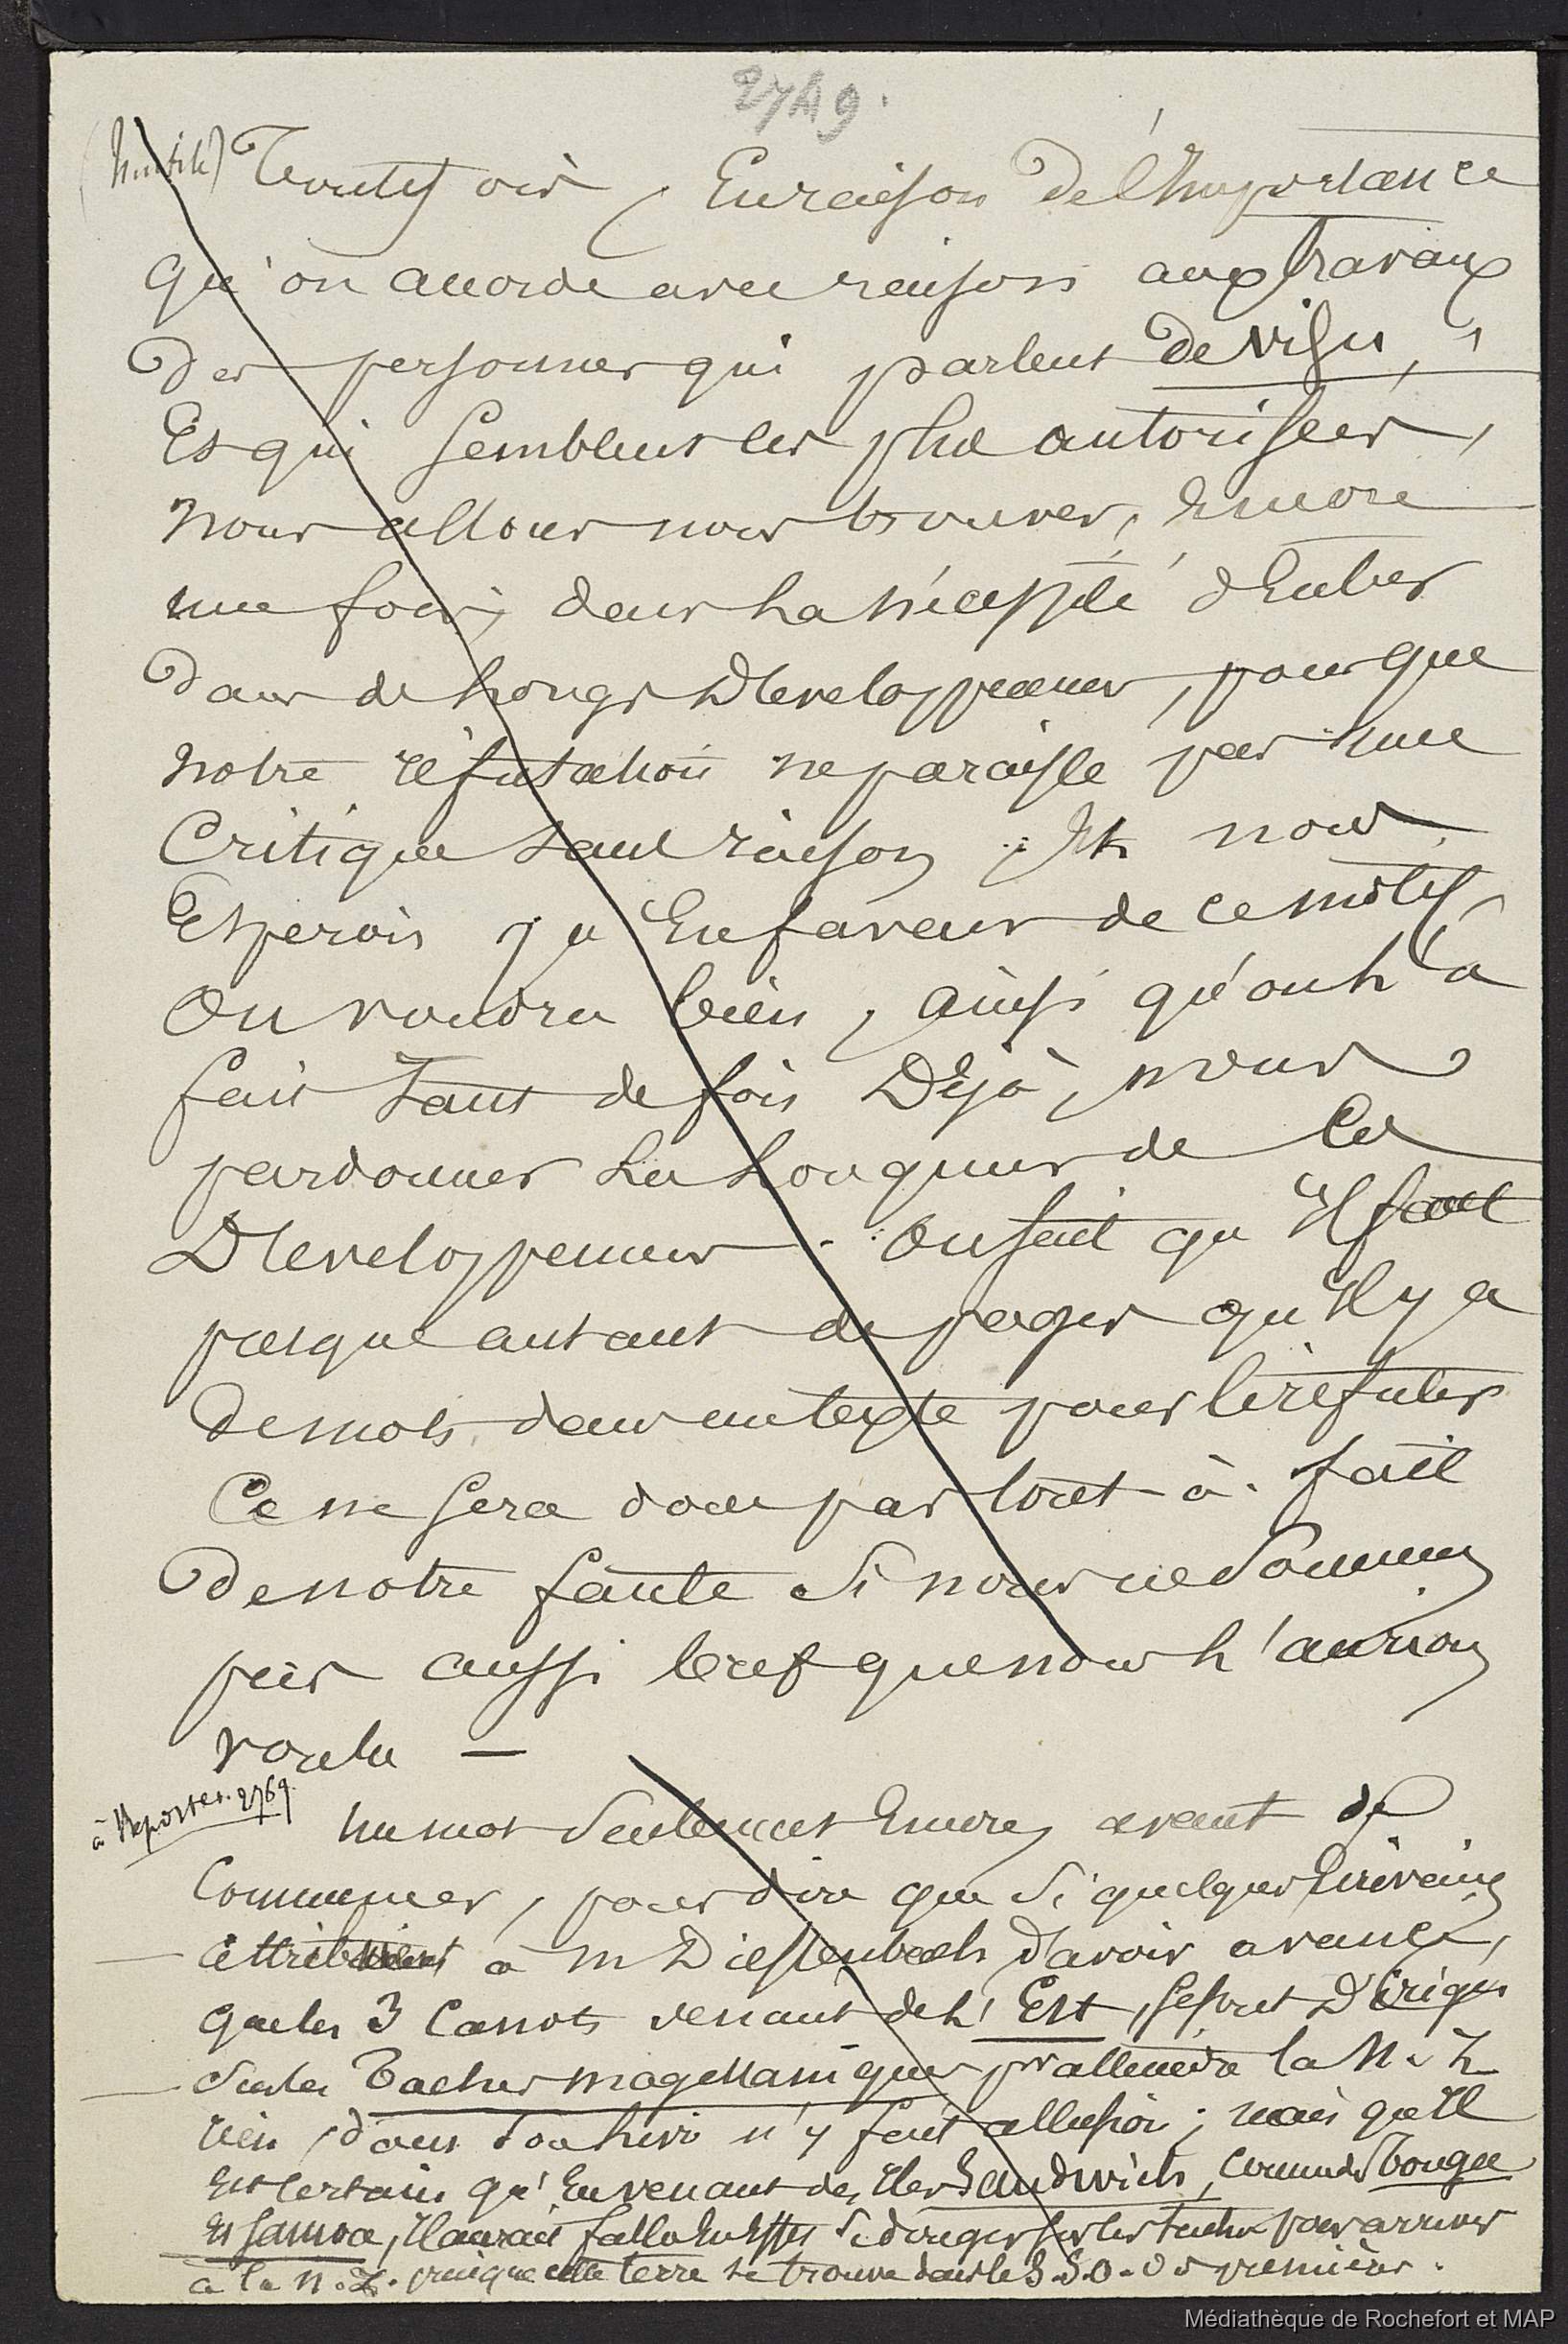 2749.
(Inutile) Toutefois, En raison De l'Importance
qu'on accorde avec raison aux travaux
Des personnes qui parlent De visu,
Et qui semblent les plus autorisées,
nous allons nous trouver, Encore
une fois, dans la nécessité d'Entrer
Dans de longs Dleveloppemens, pour que
notre réfutation ne paraisse pas une
Critique sans raison. Et nous
Esperons qu'En faveur de ce motif,
On voudra bien, ainsi qu'on l'a
fait tant de fois Déjà, nous
pardonner La Longueur de Ces
Dleveloppemens. On sait qu'Il faut
presque autant de pages qu'Il y a
De mots dans un texte pour le réfuter
Ce ne sera donc pas tout-à-fait
De notre faute si nous ne sommes
pas aussi bref que nous l'aurions
voulu —
à Reporter. 2769.
Un mot seulement Encore, avant de
Commencer, pour dire que si quelques Ecrivains
attribuent à M Dieffenbach d'avoir avancé,
que les 3 Canots venant de l'Est, se sont Dirigés
sur les Taches magellaniques pr atteindre la N. Z
rien, dans son livre n'y fait allusion; mais qu'Il
Est certain qu'En venant des Iles Sandwich, comme de Tonga
Et Samoa, Il aurait fallu En Effet se diriger sur les taches pour arriver
à la N. Z. puisque cette terre se trouve dans le S. S. O. des premières.
Médiathèque de Rochefort et MAP